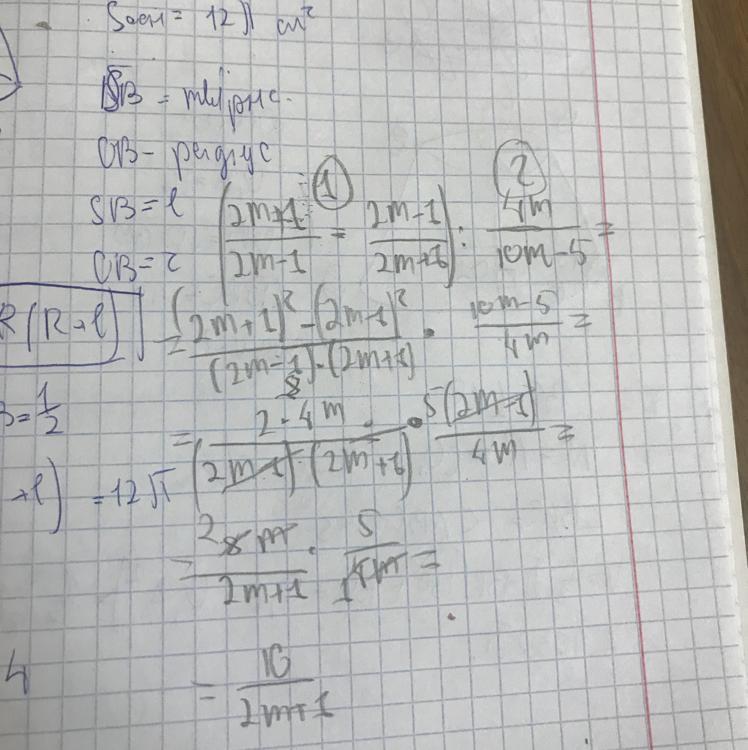 Sосн = 12π см²
SB = твірна.
OB - радіус
SB = l
OB = r
R(R+l)
= 1/2
+l) = 12π
4
① ②
(2m+1/2m-1 = 2m-1/2m+1) : 4m/10m-5 =
= (2m+1)² - (2m-1)²/(2m-1)·(2m+1) · 10m-5/4m =
= 2·4m/(2m-1)·(2m+1) · 5(2m-1)/4m =
= 8m/2m+1 · 5/4m =
= 10/2m+1